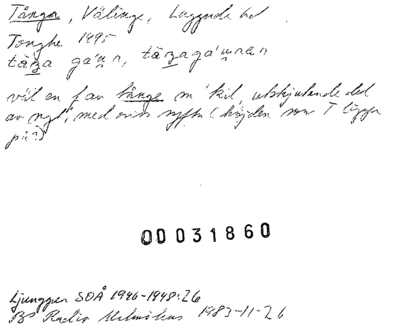 Tångor, Välinge, Luggude hd
Tonghe 1495
tåza ga'ɯn, tåzaga'ɯnan
väl en f av tånge m 'kil, utskjutande del
av ngt', med avs. syftn (höjden som T ligger
på?)
00031860
Ljunggren SOÅ 1946-1948:26
BP Radio Malmöhus 1983-11-26